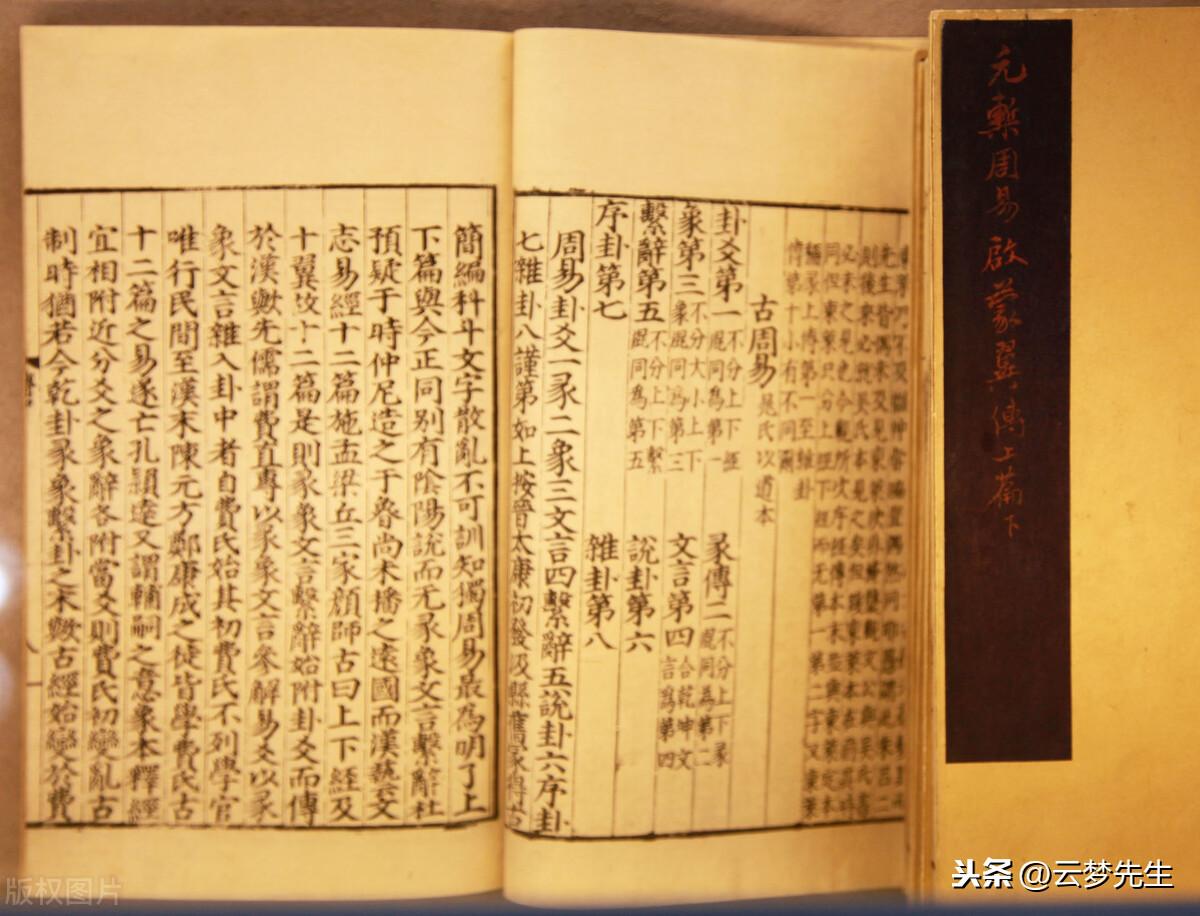 元槧周易啟蒙翼傳上篇下
傳第十小有不同爾
古周易 晁氏以道本
卦爻第一 不分上下經混同爲第一 彖傳二 不分上下彖混同為第二
象第三 不分大小上下象混同爲第三 文言第四 合乾坤文言為第四
繫辭第五 不分上下繫混同為第五 說卦第六
序卦第七 雜卦第八
周易卦爻一彖二象三文言四繫辭五說卦六序卦
七雜卦八謹第如上按晉太康初發汲縣舊冢得古
簡編科斗文字散亂不可訓知獨周易最為明了上
下篇與今正同別有陰陽說而无彖象文言繫辭杜
預疑于時仲尼造之于魯尚未播之遠國而漢藝文
志易經十二篇施孟梁丘三家顔師古曰上下經及
十翼故十二篇是則彖象文言繫辭始附卦爻而傳
於漢歟先儒謂費直專以彖象文言參解易爻以彖
象文言雜入卦中者自費氏始其初費氏不列學官
唯行民間至漢末陳元方鄭康成之徒皆學費氏古
十二篇之易遂亡孔穎達又謂輔嗣之意象本釋經
宜相附近分爻之象辭各附當爻則費氏初變亂古
制時猶若今乾卦彖象繫卦之末歟古經始變於費
版权图片
头条 @云梦先生